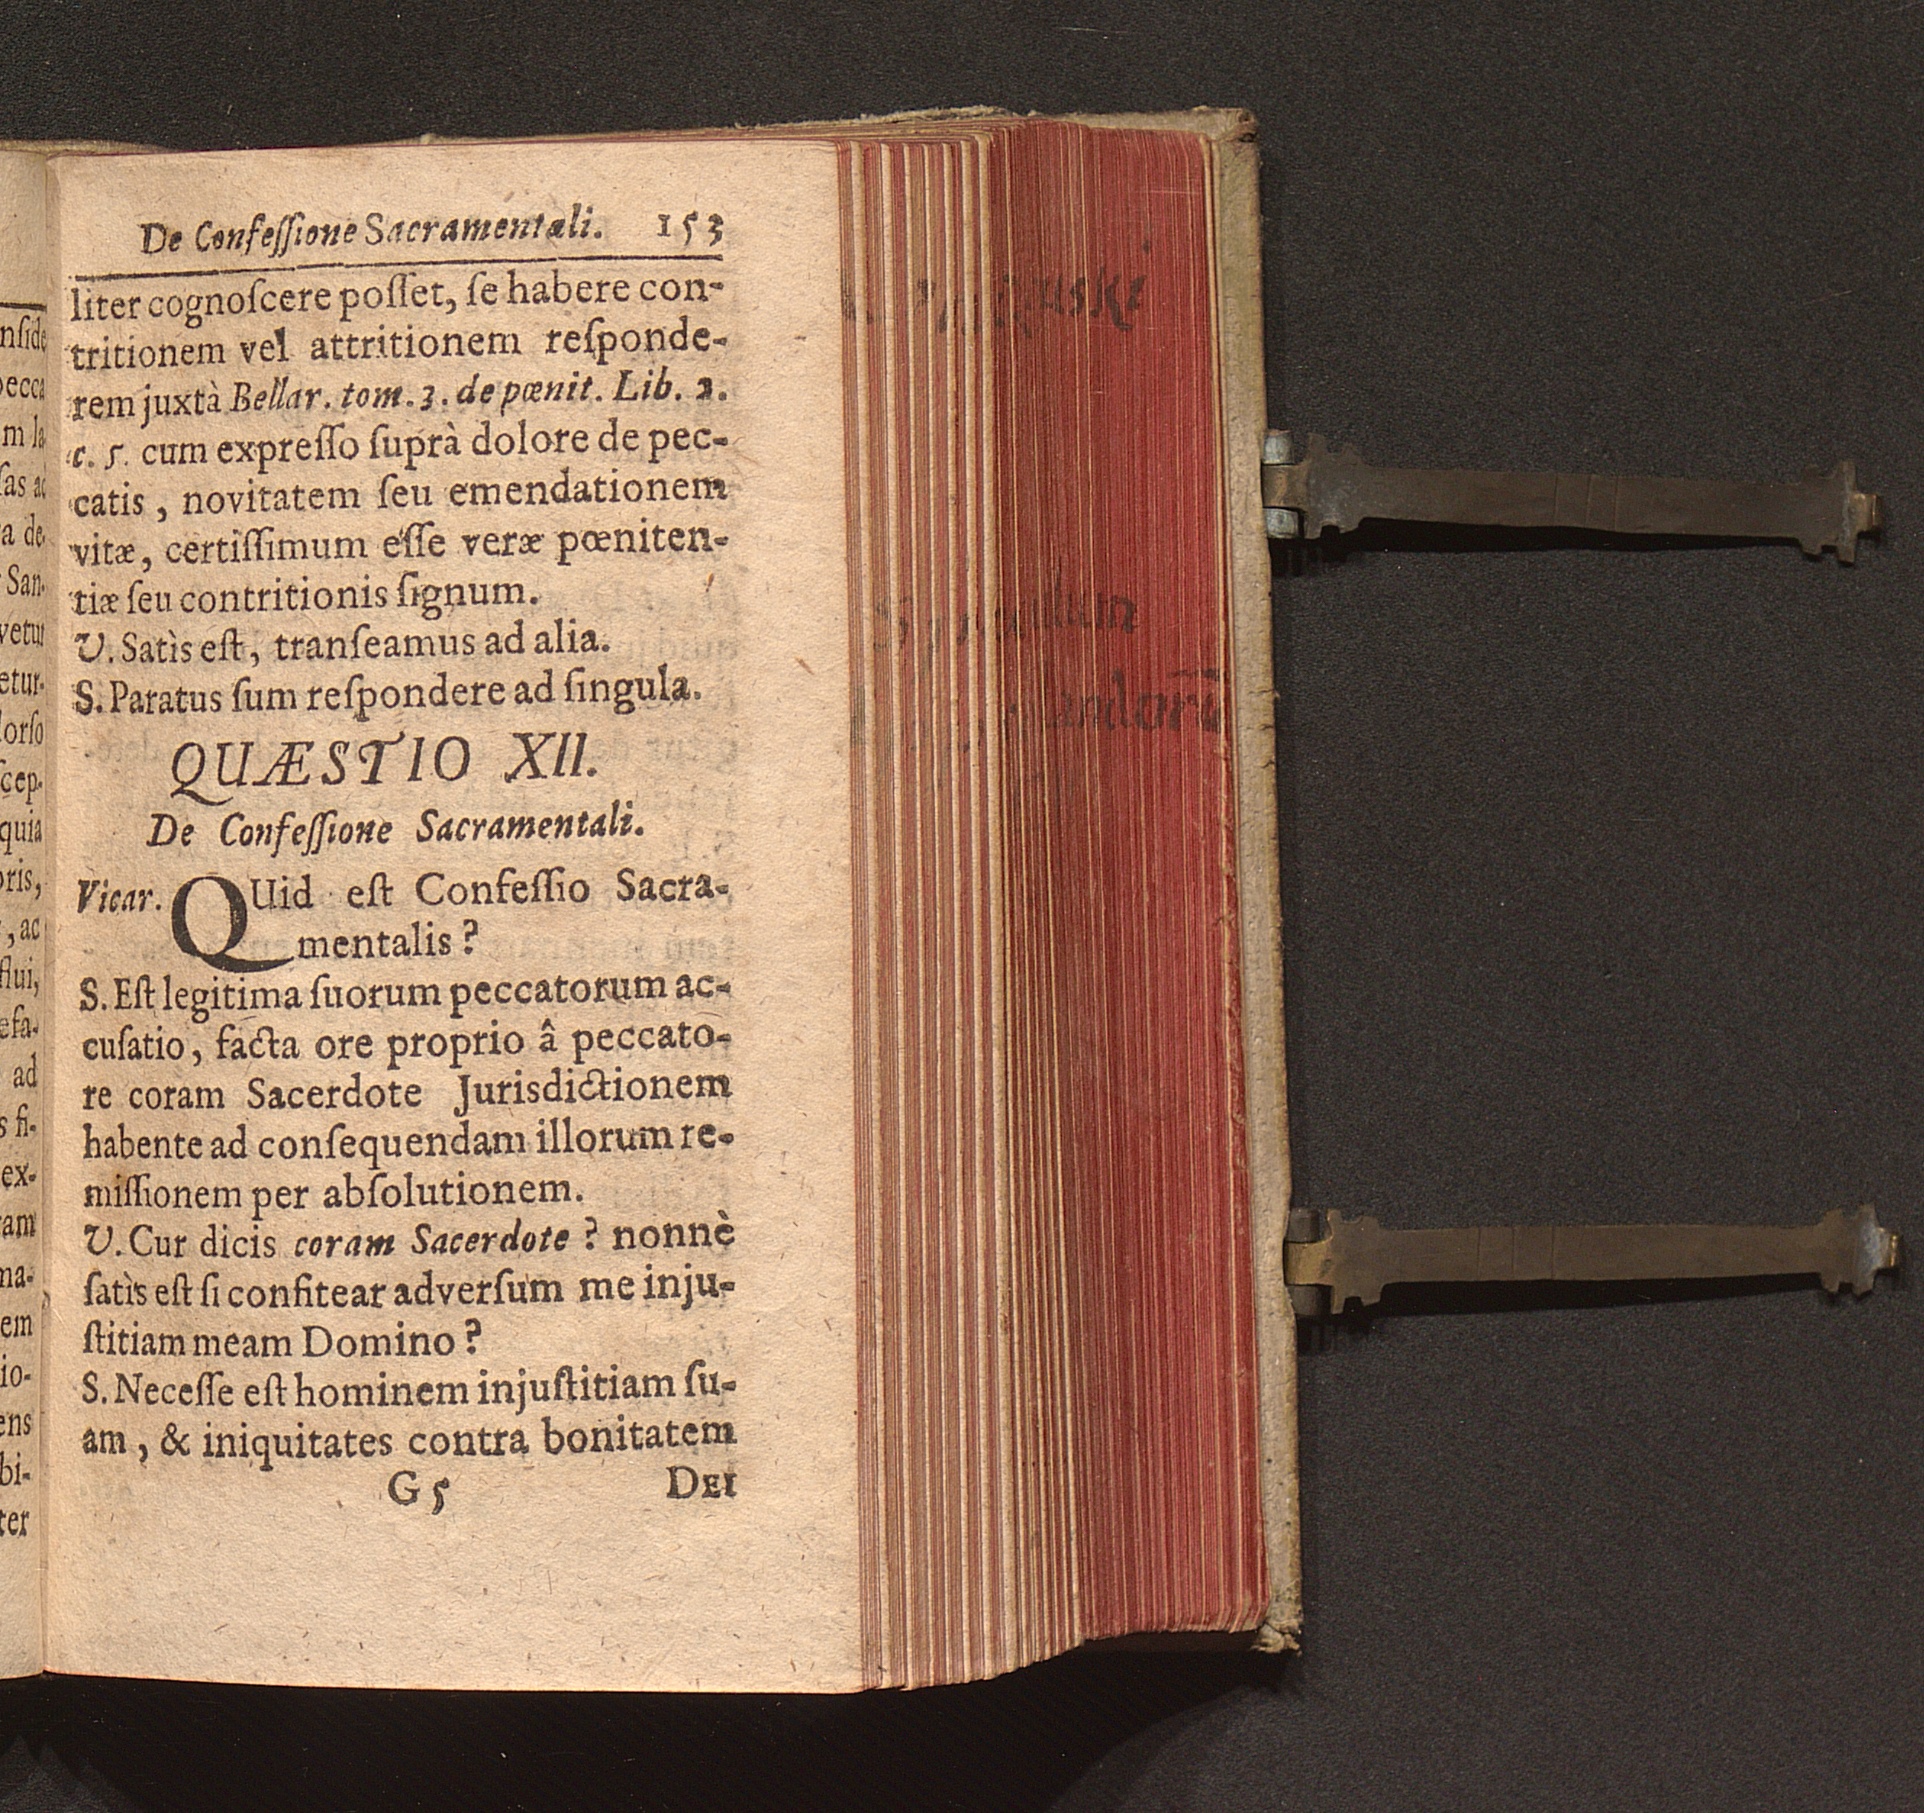 De Confeſſione Sacramentali. 153
liter cognoſcere poſſet, ſe habere con-
tritionem vel attritionem reſponde-
rem juxtà Bellar. tom. 3. de pœnit. Lib. 2.
c. 5. cum expreſſo ſuprà dolore de pec-
catis, novitatem ſeu emendationem
vitæ, certiſſimum eſſe veræ pœniten-
tiæ ſeu contritionis ſignum.
V. Satìs eſt, tranſeamus ad alia.
S. Paratus ſum reſpondere ad ſingula.
QUÆSTIO XII.
De Confeſſione Sacramentali.
Vicar. QUid eſt Confeſſio Sacra-
mentalis?
S. Eſt legitima ſuorum peccatorum ac-
cuſatio, facta ore proprio â peccato-
re coram Sacerdote Jurisdictionem
habente ad conſequendam illorum re-
miſſionem per abſolutionem.
V. Cur dicis coram Sacerdote? nonnè
ſatìs eſt ſi confitear adverſum me inju-
ſtitiam meam Domino?
S. Neceſſe eſt hominem injuſtitiam ſu-
am, & iniquitates contra bonitatem
G5 DEI
nſide
pecca
m la
ſas ad
a de-
San-
vetur
etur-
dorſo
ſcep-
quia
oris,
, ac
flui,
efa-
ad
s fi-
ex-
ram
ma-
em
io-
ens
bi-
ter